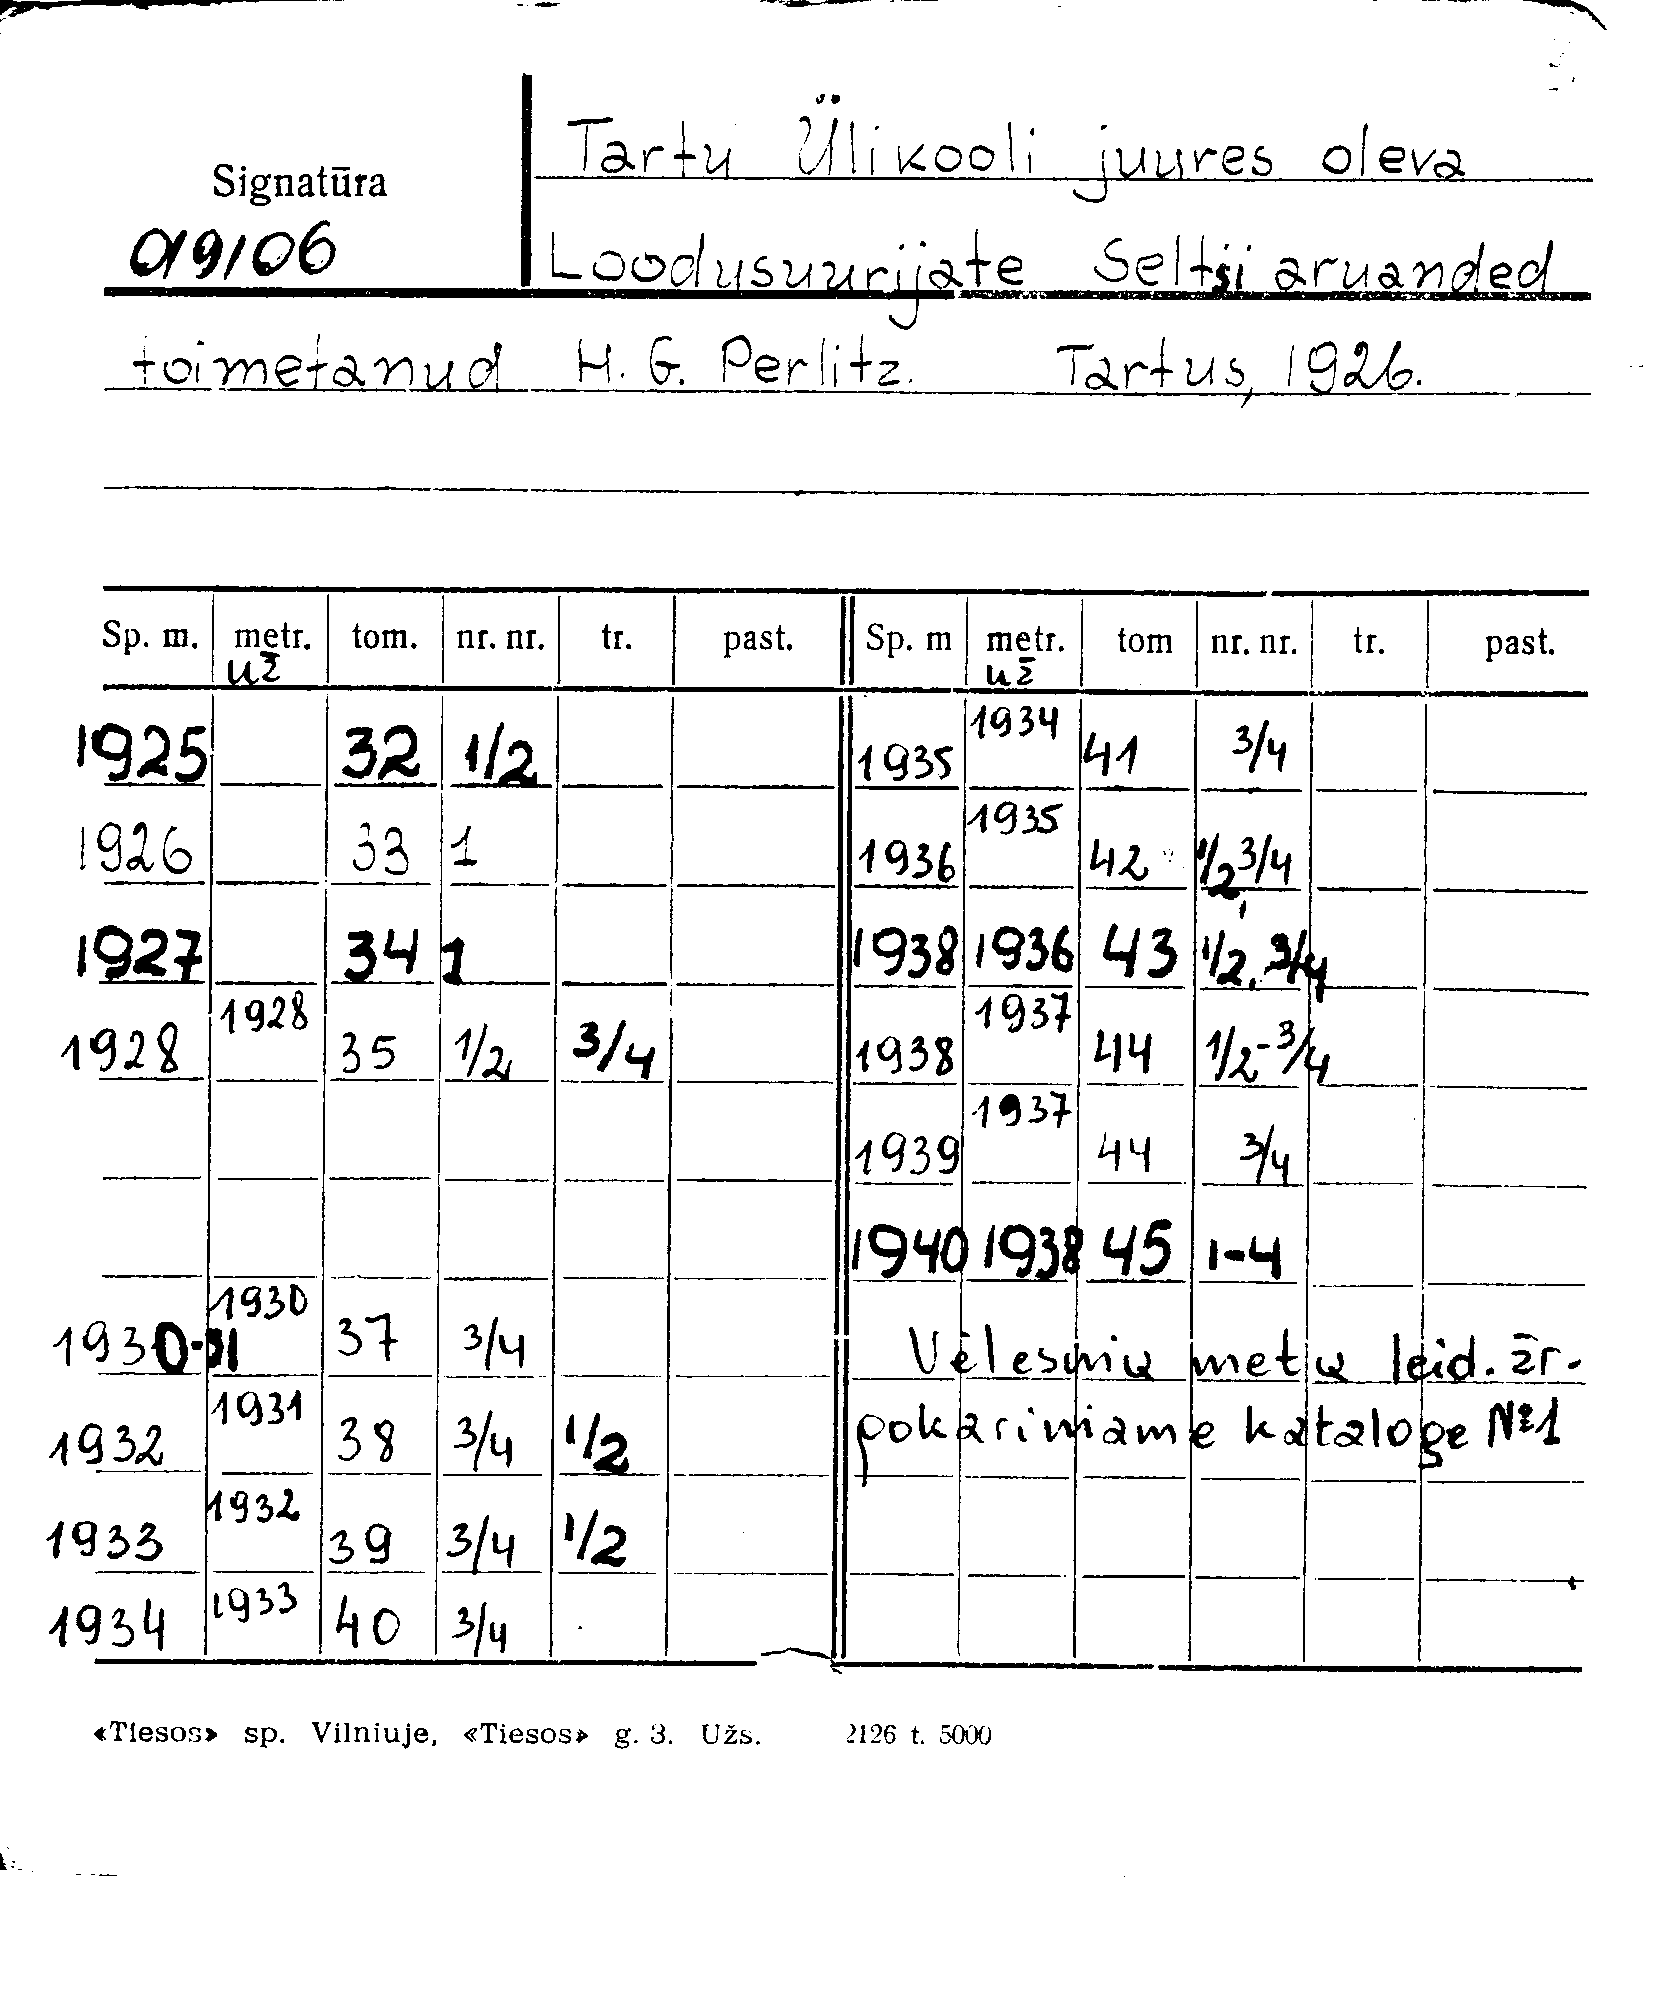 Tartu Ülikooli juures oleva
Signatūra
Loodusuurijate Seltsi aruanded
toimetanud H. G. Perlitz. Tartus, 1926.
Sp. m. metr. tom. nr. nr. tr. past. Sp. m metr. tom nr. nr. tr. past.
už už
1925 32 1/2 1935 1934 41 3/4
1926 33 1 1936 1935 42 1/2, 3/4
1927 34 1 1938 1936 43 1/2, 3/4
1928 1928 35 1/2 3/4 1938 1937 44 1/2-3/4
1939 1937 44 3/4
1940 1938 45 1-4
1930-31 1930 37 3/4 Vėlesnių metų leid. žr.
1932 1931 38 3/4 1/2 pokariniame kataloge №1
1933 1932 39 3/4 1/2
1934 1933 40 3/4
«Tiesos» sp. Vilniuje, «Tiesos» g. 3. Užs. 2126 t. 5000